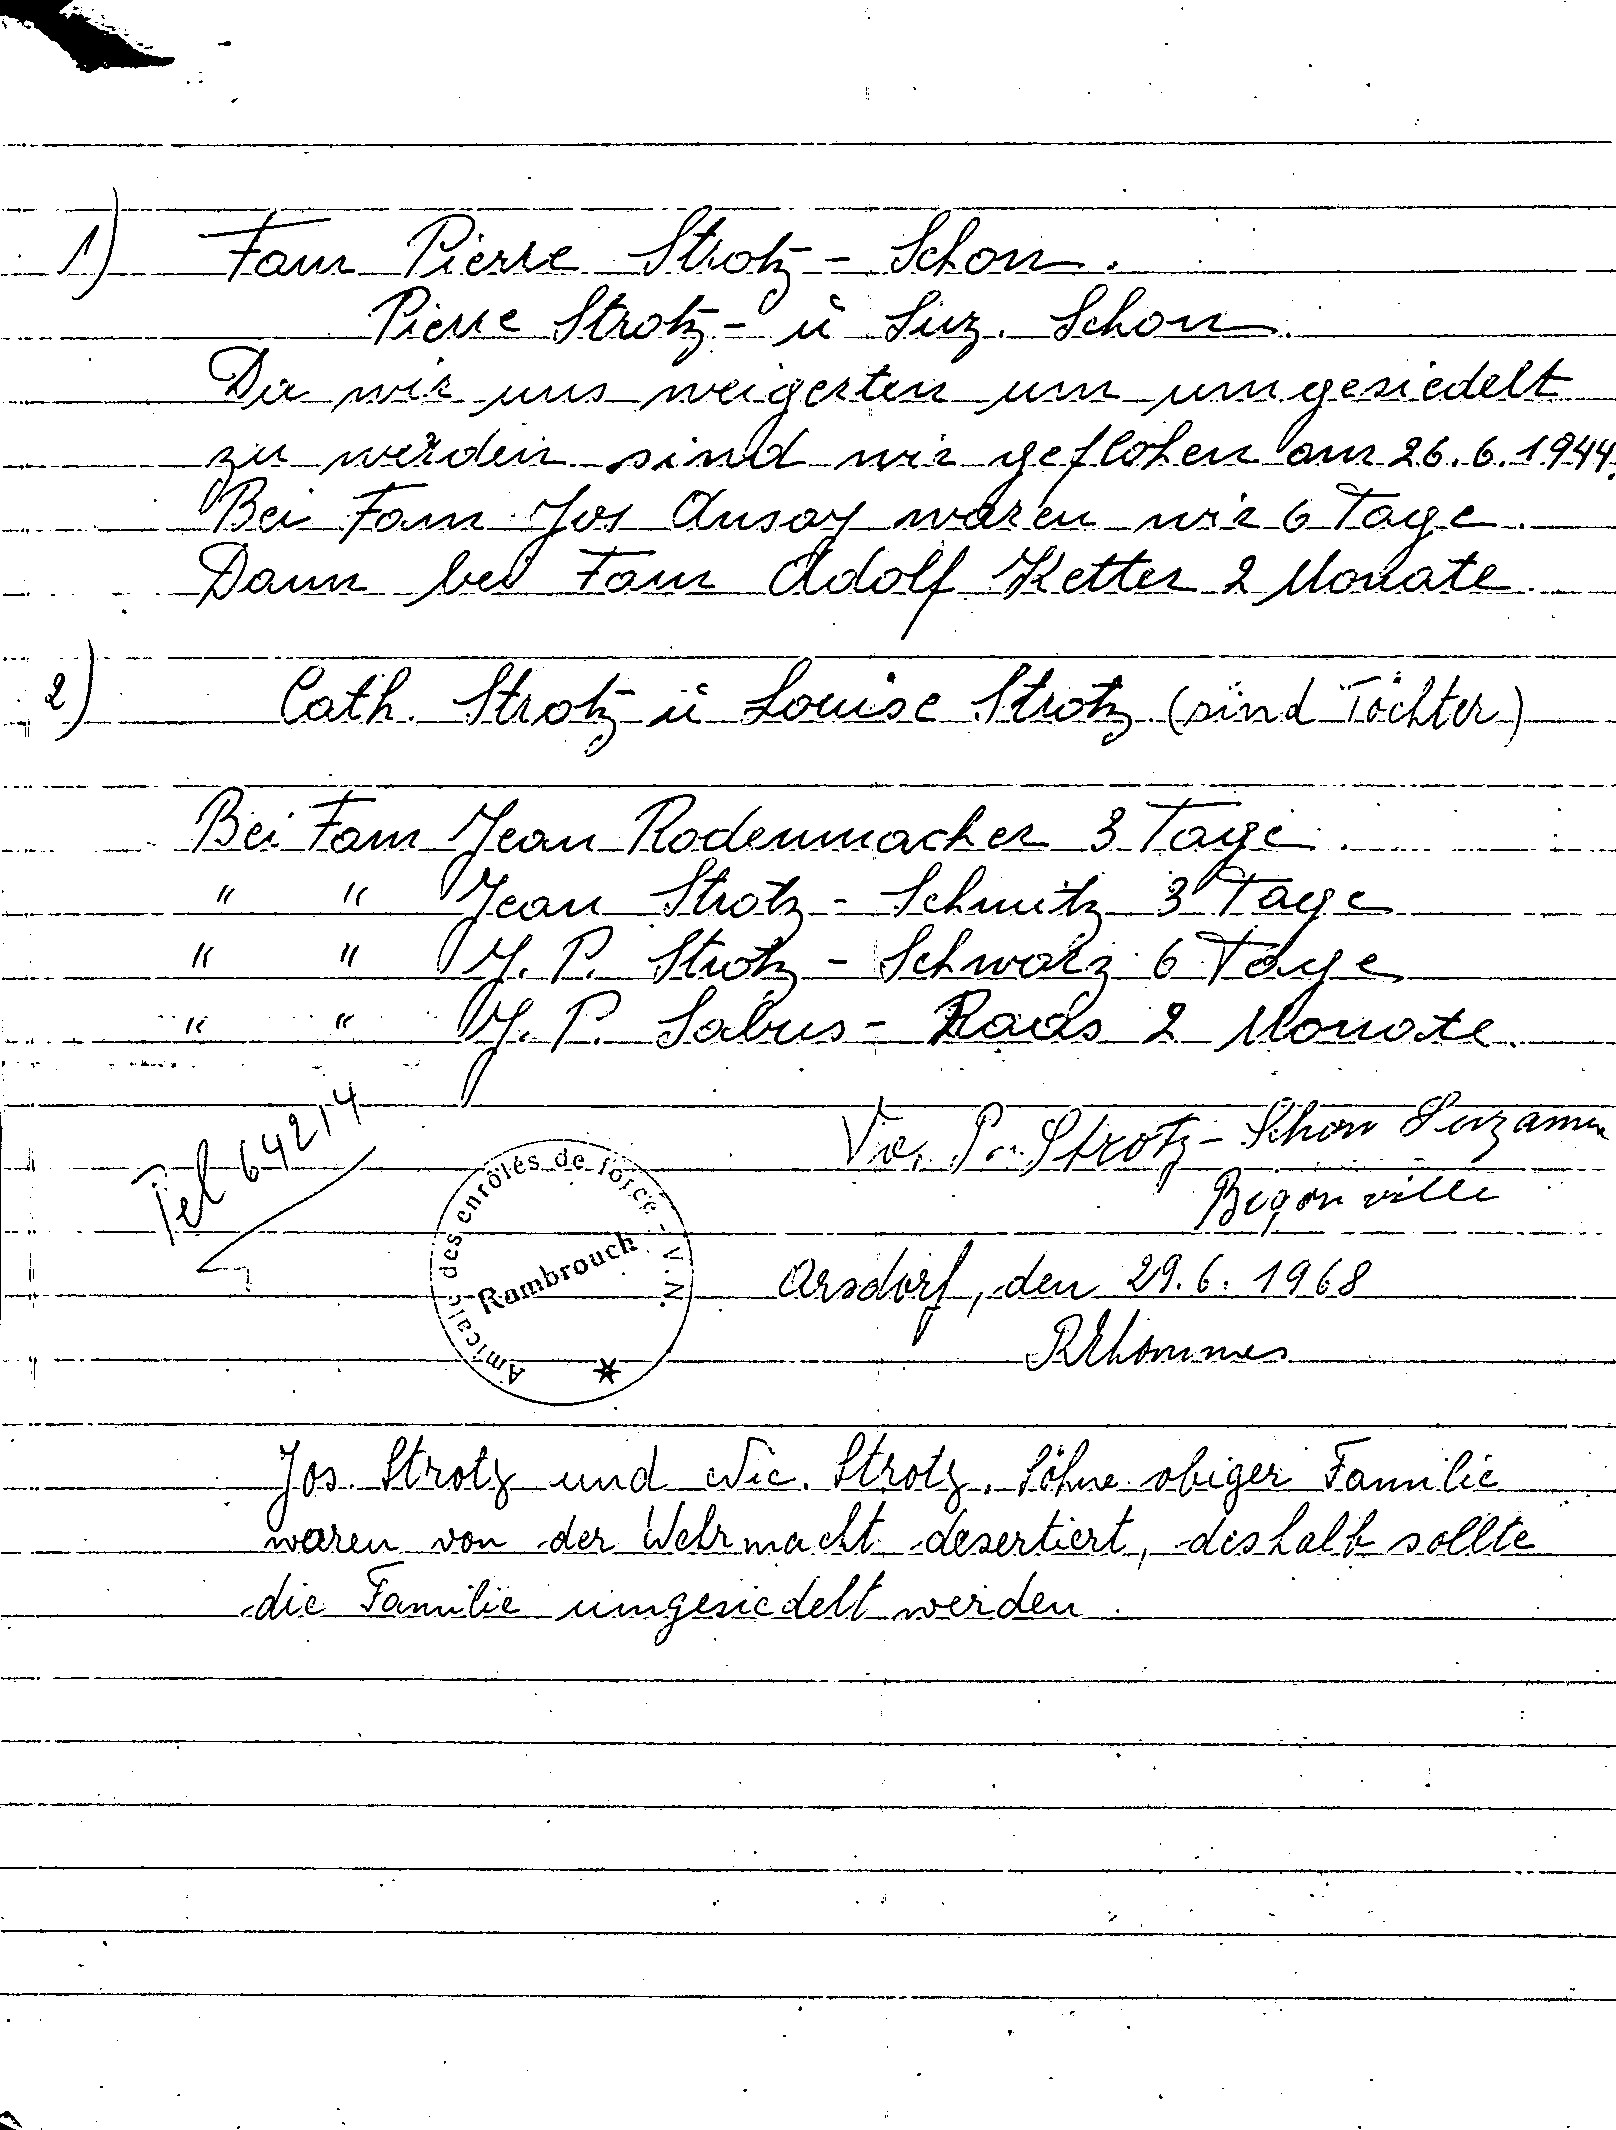 1) Fam Pierre Strotz - Schon.
Pierre Strotz - ü Suz. Schon.
Da wir uns weigerten um umgesiedelt
zu werden sind wir geflohen am 26.6.1944.
Bei Fam Jos Ansay waren wir 6 Tage.
Dann bei Fam Adolf Ketter 2 Monate
2) Cath. Strotz ü Louise Strotz (sind Töchter)
Bei Fam Jean Rodenmacher 3 Tage
" " Jean Strotz - Schmitz 3 Tage
" " J. P. Strotz - Schwarz 6 Tage
" " J. P. Sabus - 2 Monate.
Tel 64214
Strotz - Schon Suzanne
Bigonville
Amicale des enrôlés de force - V.N.
Rambrouch
Arsdorf, den 29.6.1968
Jos. Strotz und Nic. Strotz, Söhne obiger Familie
waren von der Wehrmacht desertiert, deshalb sollte
die Familie umgesiedelt werden.